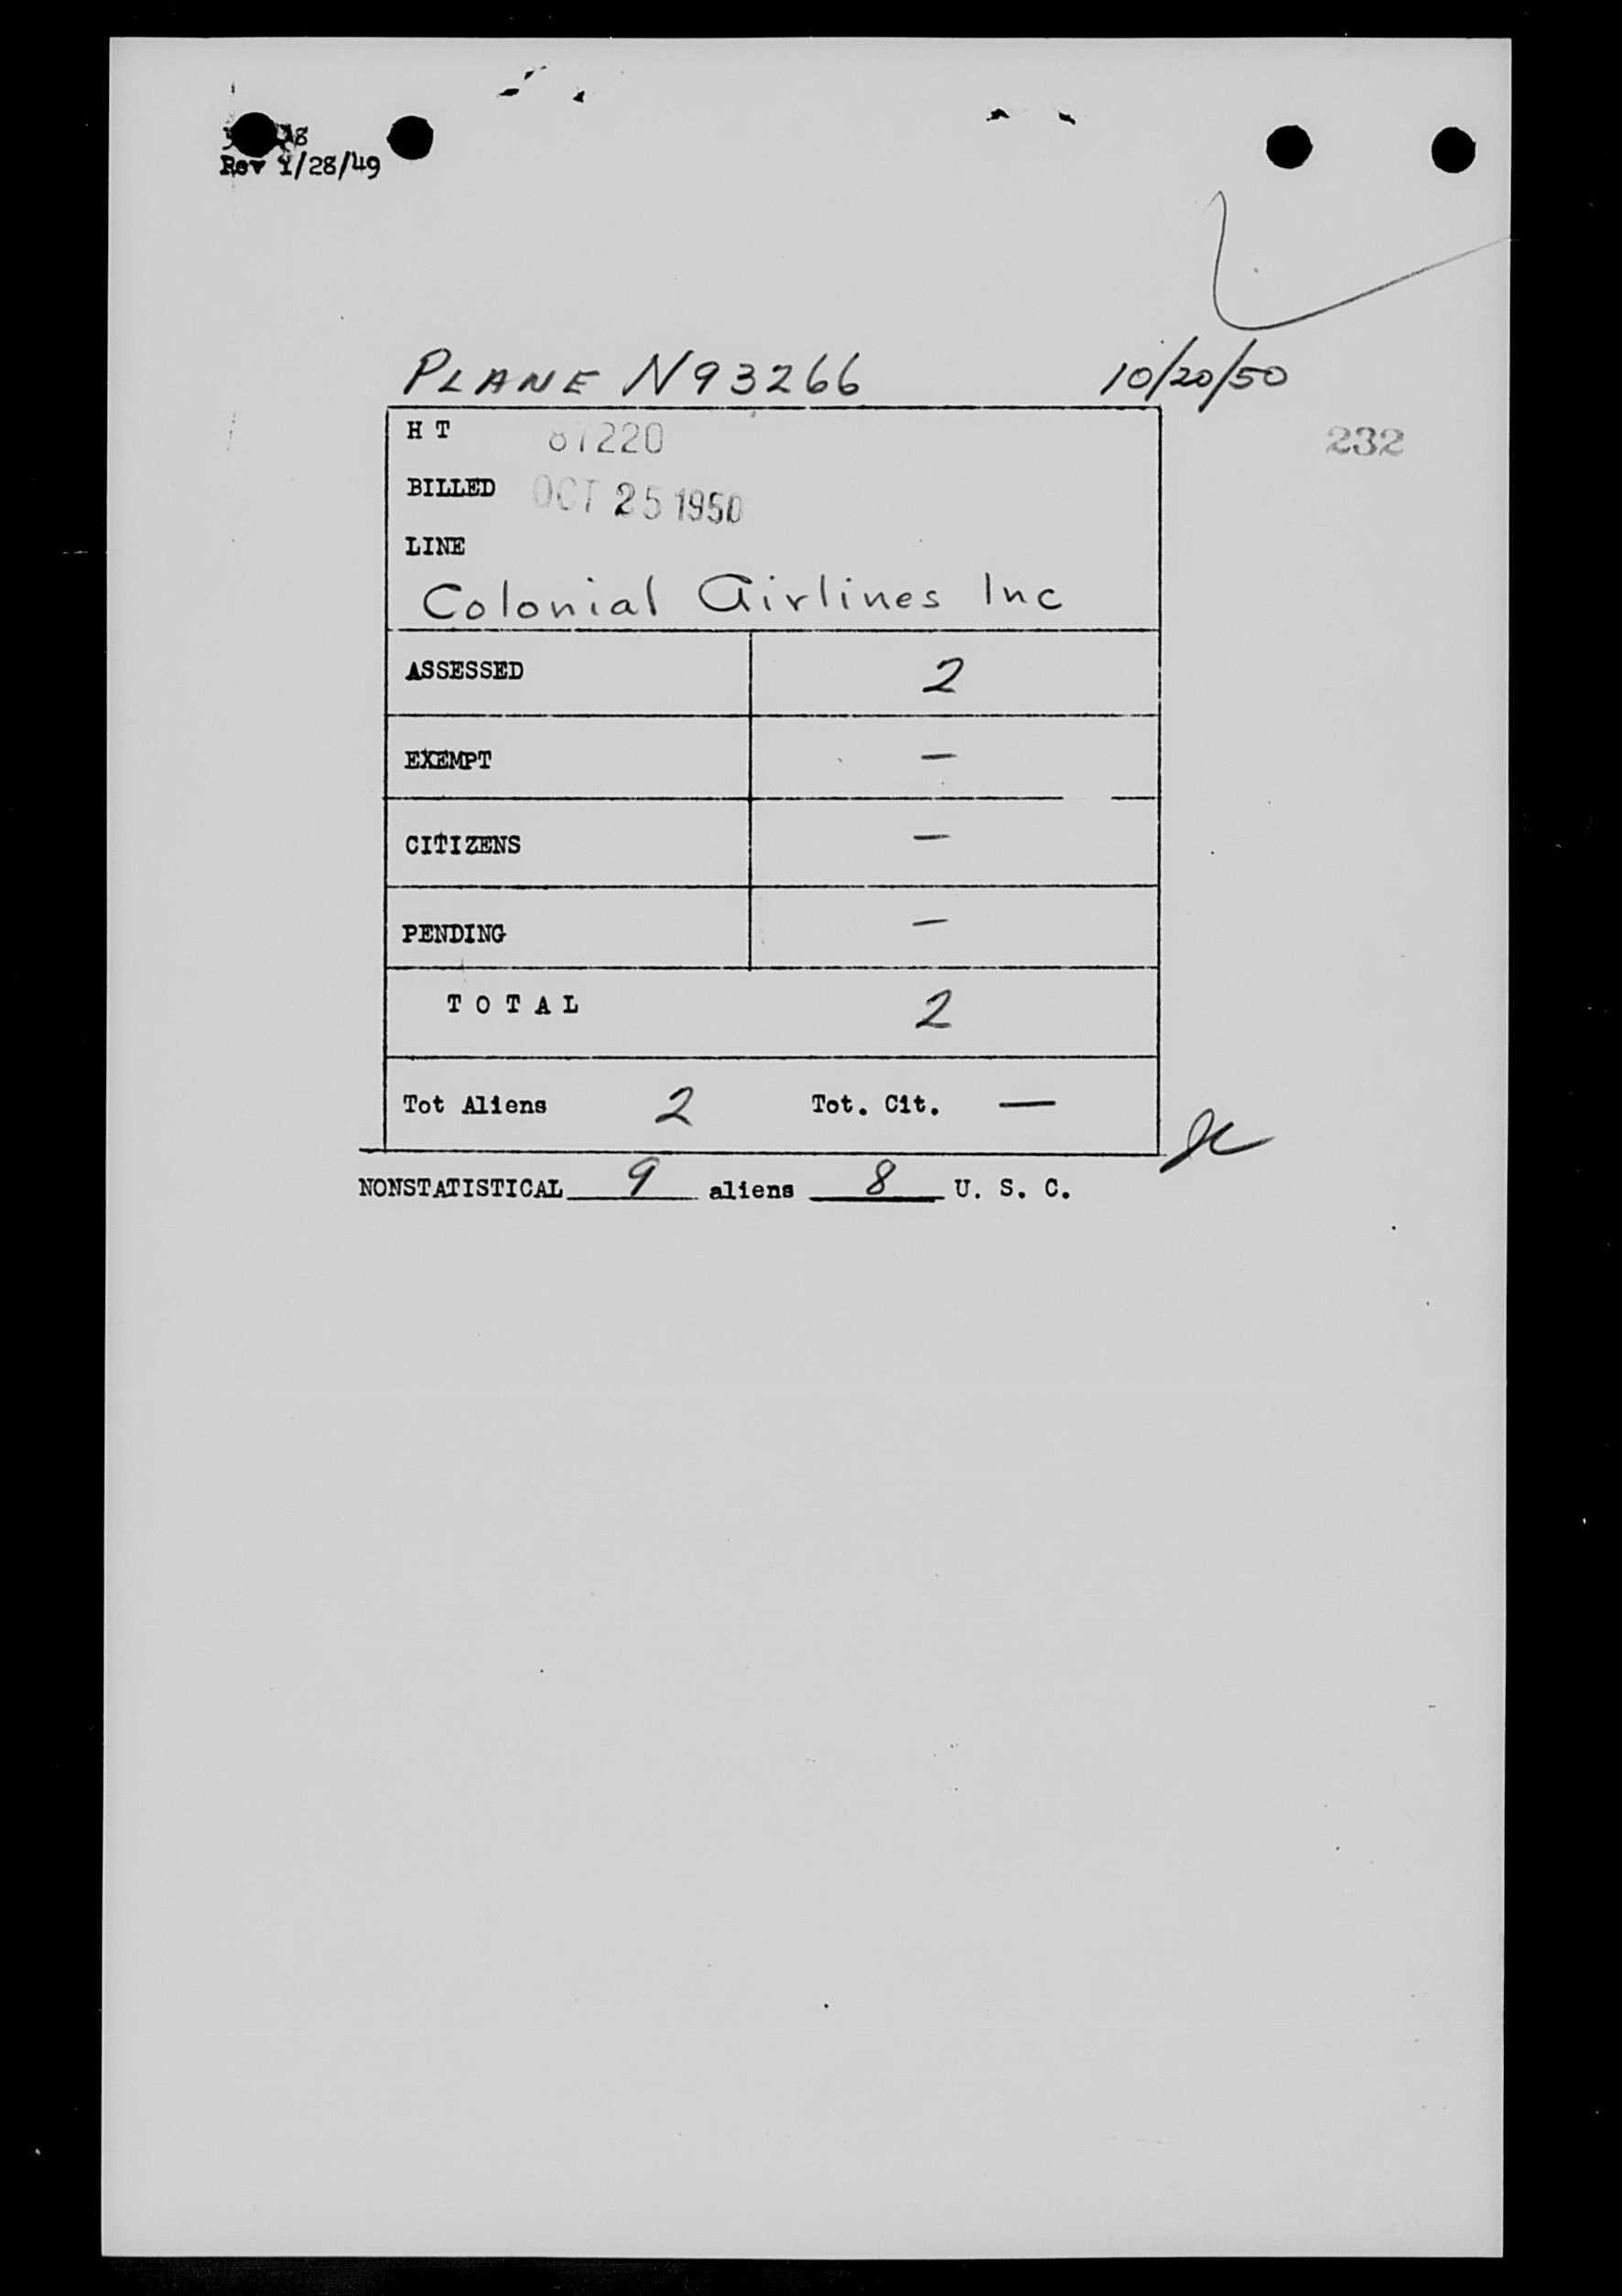 Rev 1/28/49
PLANE N93266 10/20/50
H T 87220
232
BILLED OCT 25 1950
LINE
Colonial Airlines Inc
ASSESSED 2
EXEMPT —
CITIZENS —
PENDING —
TOTAL 2
Tot Aliens 2 Tot. Cit. —
NONSTATISTICAL 9 aliens 8 U. S. C.